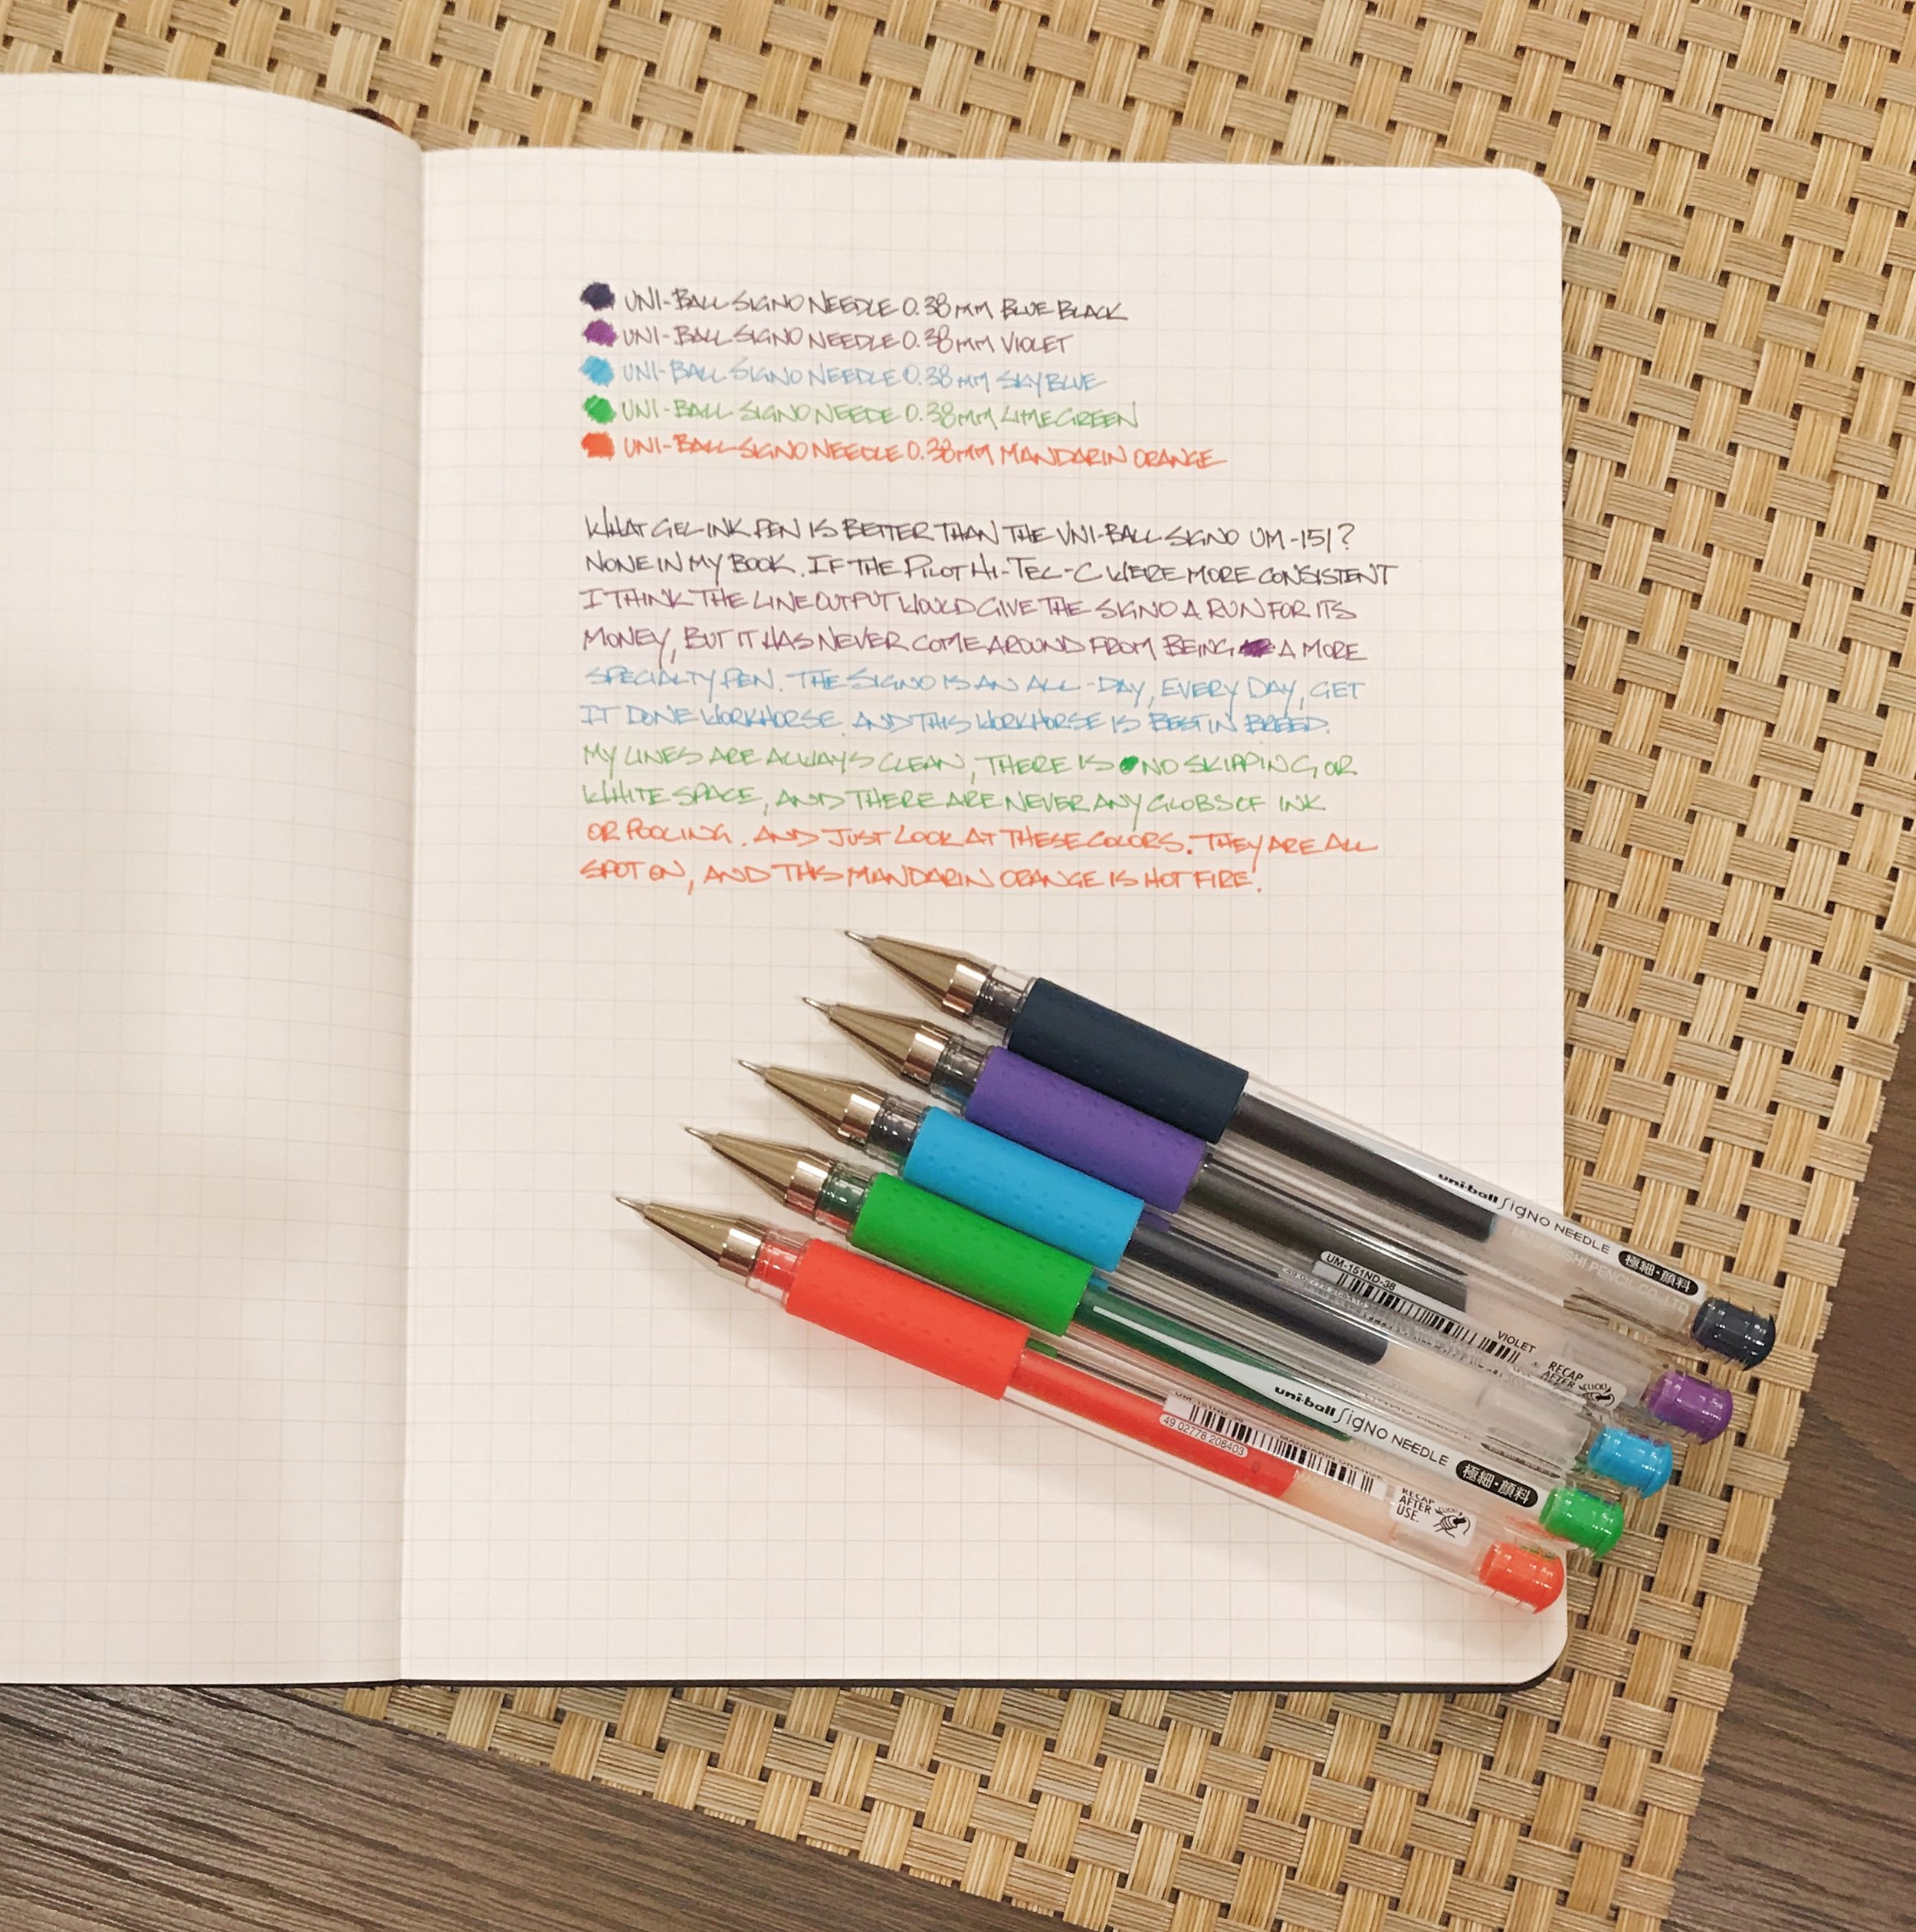 UNI-BALL SIGNO NEEDLE 0.38MM BLUE BLACK
UNI-BALL SIGNO NEEDLE 0.38MM VIOLET
UNI-BALL SIGNO NEEDLE 0.38MM SKY BLUE
UNI-BALL SIGNO NEEDE 0.38MM LIME GREEN
UNI-BALL SIGNO NEEDLE 0.38MM MANDARIN ORANGE
WHAT GEL INK PEN IS BETTER THAN THE UNI-BALL SIGNO UM-151?
NONE IN MY BOOK. IF THE PILOT HI-TEC-C WERE MORE CONSISTENT
I THINK THE LINE OUTPUT WOULD GIVE THE SIGNO A RUN FOR ITS
MONEY, BUT IT HAS NEVER COME AROUND FROM BEING A MORE
SPECIALTY PEN. THE SIGNO IS AN ALL-DAY, EVERY DAY, GET
IT DONE WORKHORSE. AND THIS WORKHORSE IS BEST IN BREED.
MY LINES ARE ALWAYS CLEAN, THERE IS NO SKIPPING OR
WHITE SPACE, AND THERE ARE NEVER ANY GLOBS OF INK
OR POOLING. AND JUST LOOK AT THESE COLORS. THEY ARE ALL
SPOT ON, AND THIS MANDARIN ORANGE IS HOT FIRE!
uni-ball SigNO NEEDLE 極細・顔料
PENCIL CO., LTD.
UM-151ND-38
VIOLET
RECAP
AFTER
CLICK!
uni-ball SigNO NEEDLE 極細・顔料
49 02778 208403
MANDARIN ORANGE
RECAP
AFTER
USE.
CLICK!